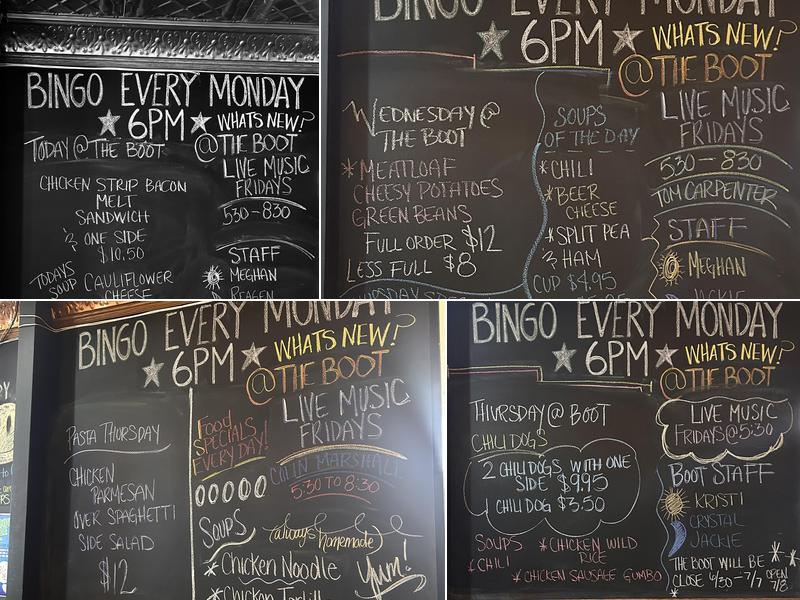 BINGO EVERY MONDAY
6PM
WHATS NEW?
@ THE BOOT
TODAY @ THE BOOT
CHICKEN STRIP BACON
MELT
SANDWICH
ONE SIDE
$10.50
TODAYS
SOUP
CAULIFLOWER
CHEESE
LIVE MUSIC
FRIDAYS
530-830
STAFF
MEGHAN
REAGEN
BINGO EVERY MONDAY
6PM
WHATS NEW?
@THE BOOT
WEDNESDAY @
THE BOOT
* MEATLOAF
CHEESY POTATOES
GREEN BEANS
FULL ORDER $12
LESS FULL $8
SOUPS
OF THE DAY
* CHILI
* BEER
CHEESE
* SPLIT PEA
& HAM
CUP $4.95
LIVE MUSIC
FRIDAYS
530-830
TOM CARPENTER
STAFF
MEGHAN
JACKIE
BINGO EVERY MONDAY
6PM
WHATS NEW?
@THE BOOT
PASTA THURSDAY
CHICKEN
PARMESAN
OVER SPAGHETTI
SIDE SALAD
$12
Food
SPECIALS
EVERY DAY!
SOUPS
(always homemade)
* Chicken Noodle
* Chicken Tortill
Yum!
LIVE MUSIC
FRIDAYS
COLIN MARSHALL
5:30 TO 8:30
BINGO EVERY MONDAY
6PM
WHATS NEW?
@THE BOOT
THURSDAY @ BOOT
CHILI DOGS
2 CHILI DOGS WITH ONE
SIDE $9.95
1 CHILI DOG $3.50
SOUPS
* CHILI
* CHICKEN WILD
RICE
* CHICKEN SAUSAGE GUMBO
LIVE MUSIC
FRIDAYS @ 5:30
BOOT STAFF
KRISTI
CRYSTAL
JACKIE
THE BOOT WILL BE
CLOSE 6/30-7/7 OPEN
7/8